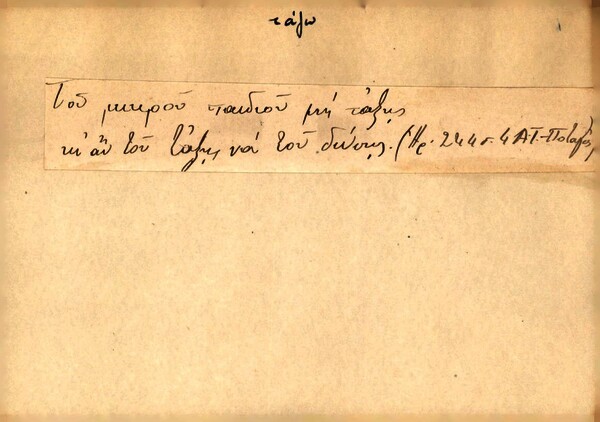 τάζω
Τοῦ μικροῦ παιδιοῦ μή τάξῃς
κι ἄν τοῦ τάξῃς νά τοῦ δώσῃς. (Ἀρ. 244 σ. 4 ΑΓ.-Ποταβός)